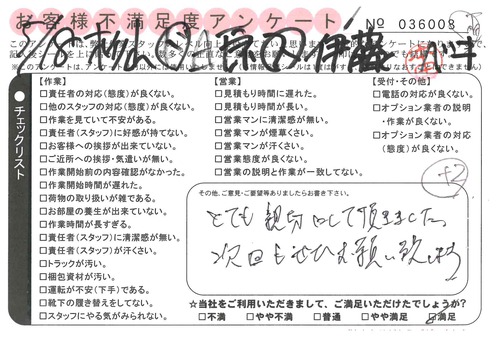 お客様不満足度アンケート
No 036008
チェックリスト
【作業】
□責任者の対応(態度)が良くない。
□他のスタッフの対応(態度)が良くない。
□作業を見ていて不安がある。
□責任者(スタッフ)に好感が持てない。
□お客様への挨拶が出来ていない。
□ご近所への挨拶・気遣いが無い。
□作業開始前の内容確認がなかった。
□作業開始時間が遅れた。
□荷物の取り扱いが雑である。
□お部屋の養生が出来ていない。
□作業時間が長すぎる。
□責任者(スタッフ)に清潔感が無い。
□責任者(スタッフ)が汗くさい。
□トラックが汚い。
□梱包資材が汚い。
□運転が不安(下手)である。
□靴下の履き替えをしてない。
□スタッフにやる気がみられない。
【営業】
□見積もり時間に遅れた。
□見積もり時間が長い。
□営業マンに清潔感が無い。
□営業マンが煙草くさい。
□営業マンが汗くさい。
□営業態度が良くない。
□営業の説明と作業が一致してない。
【受付・その他】
□電話の対応が良くない。
□オプション業者の説明
・作業が良くない。
□オプション業者の対応
(態度)が良くない。
その他、ご意見・ご要望等ありましたらお書き下さい。
とても親切にして頂きました。
次回もぜひお願い致します
☆当社をご利用いただきまして、ご満足いただけたでしょうか?
□不満 □やや不満 □普通 □やや満足 □満足